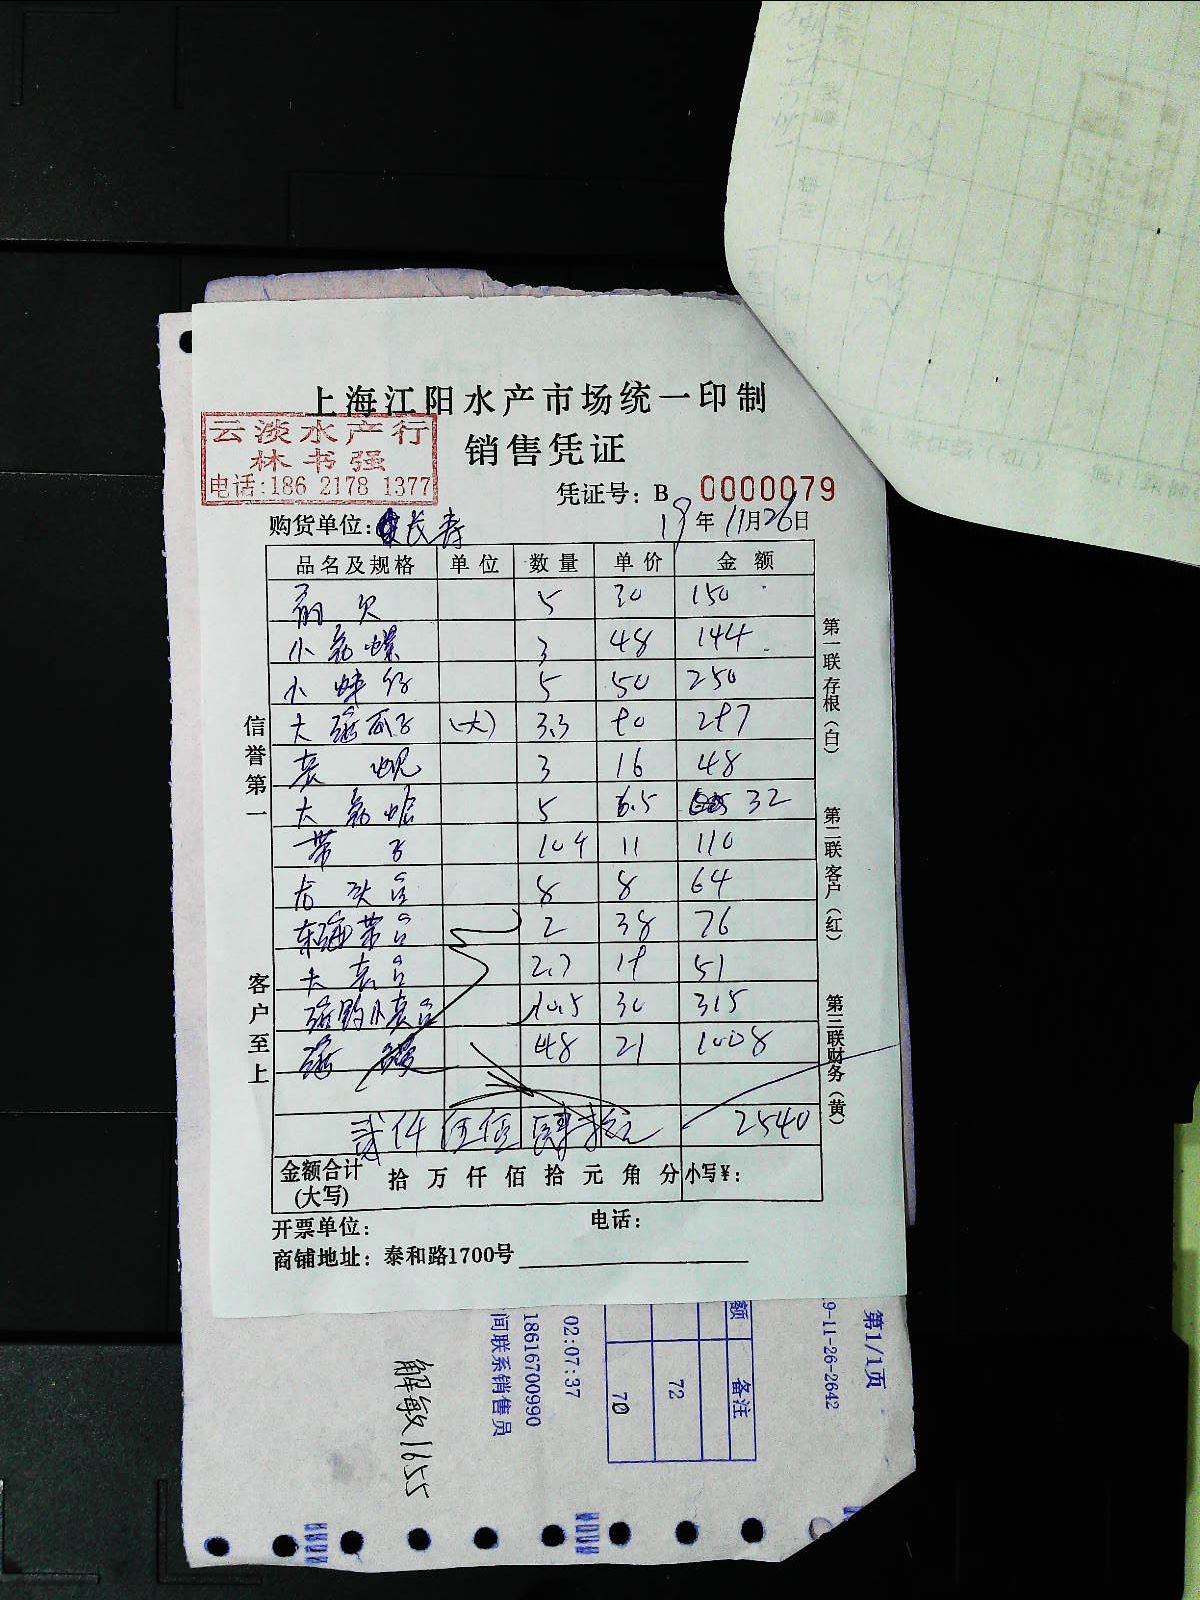 上海江阳水产市场统一印制
云淡水产行
林书强
电话:186 2178 1377
销售凭证
凭证号: B 0000079
购货单位: 长寿 19年11月26日
品名及规格 单位 数量 单价 金额
5 30 150
小 螺 3 48 144
小 5 50 250
大 海瓜子 (大) 3.3 90 297
花 蚬 3 16 48
大 5 6.5 32
带 子 10.4 11 110
龙 头 8 8 64
东海 带 2 38 76
大 2.7 19 51
小 10.5 30 315
48 21 1008
贰仟伍佰肆拾元 2540
金额合计(大写) 拾 万 仟 佰 拾 元 角 分 小写¥:
开票单位: 电话:
商铺地址: 泰和路1700号
信誉第一
客户至上
第一联存根(白)
第二联客户(红)
第三联财务(黄)
第1/1页
9-11-26-2642
额 备注
72
70
02:07:37
18616700990
间联系销售员
解敏1655